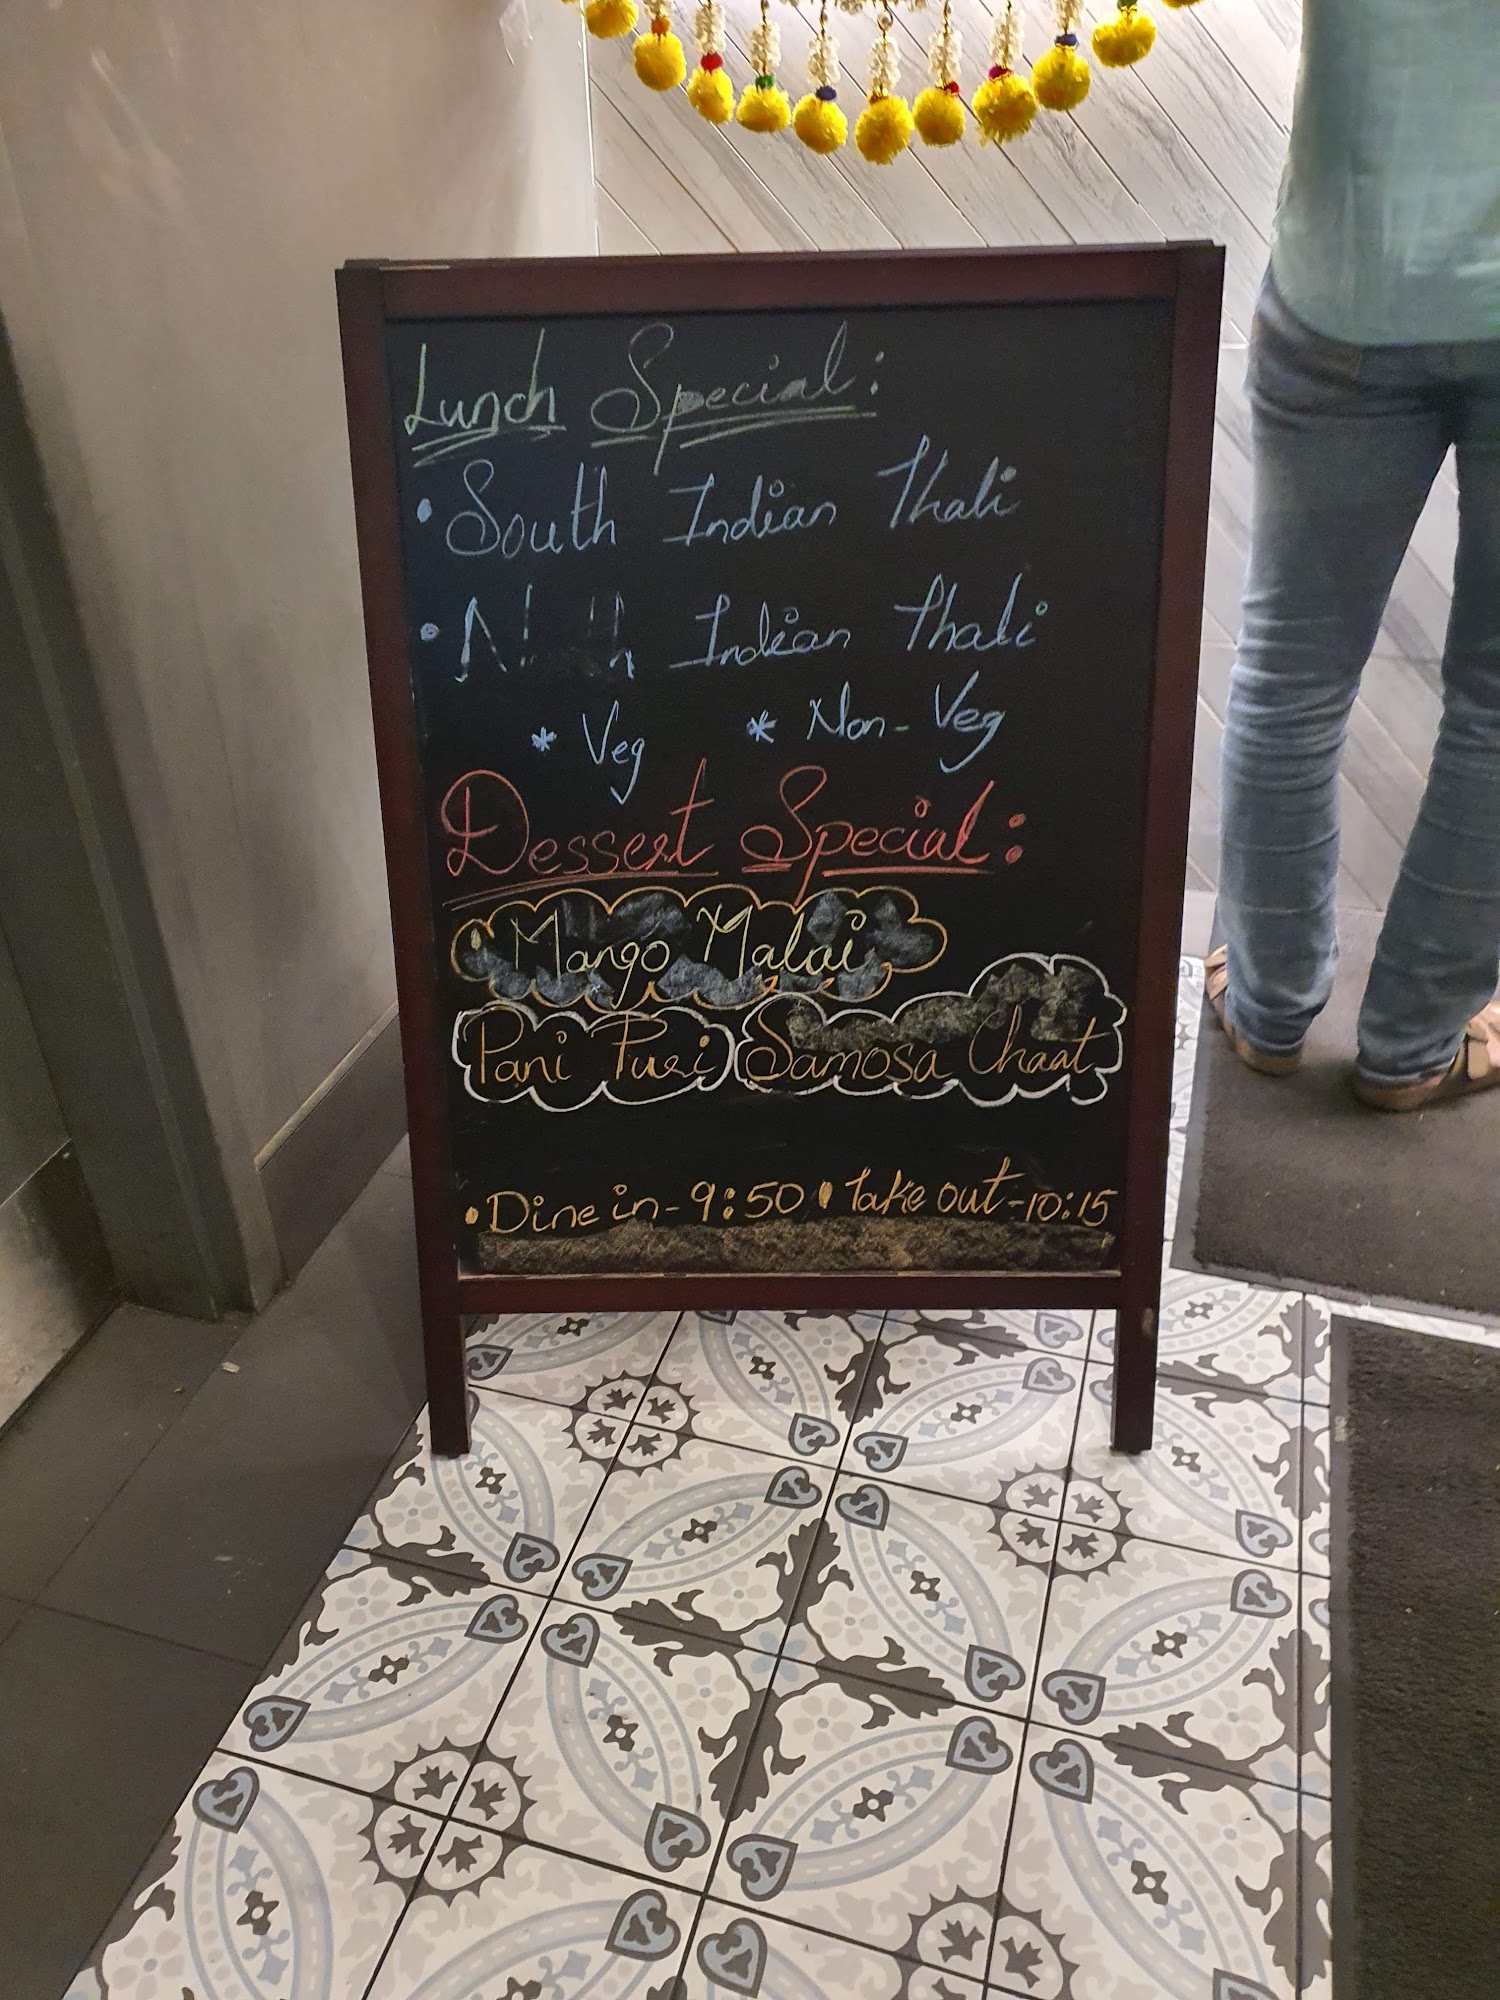 Lunch Special:
• South Indian Thali
• North Indian Thali
* Veg * Non-Veg
Dessert Special:
• Mango Malai
Pani Puri Samosa Chaat
• Dine in - 9:50 • Take out - 10:15